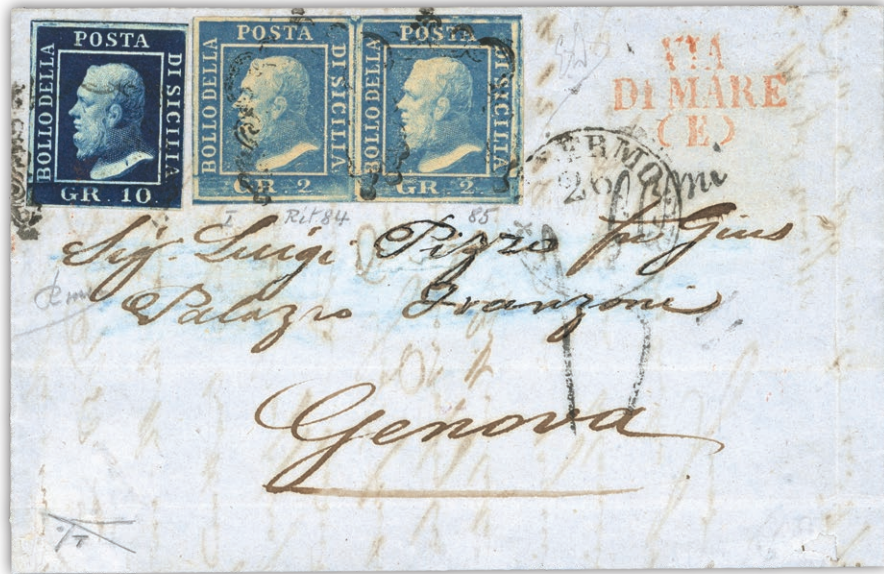 POSTA
BOLLO DELLA
DI SICILIA
GR. 10.
POSTA
BOLLO DELLA
DI SICILIA
GR. 2
POSTA
BOLLO DELLA
DI SICILIA
GR. 2.
VIA
DI MARE
(E)
26
I Rit 84 85
Sig. Luigi Pizzo fu Gius
Palazzo Franzoni
Genova